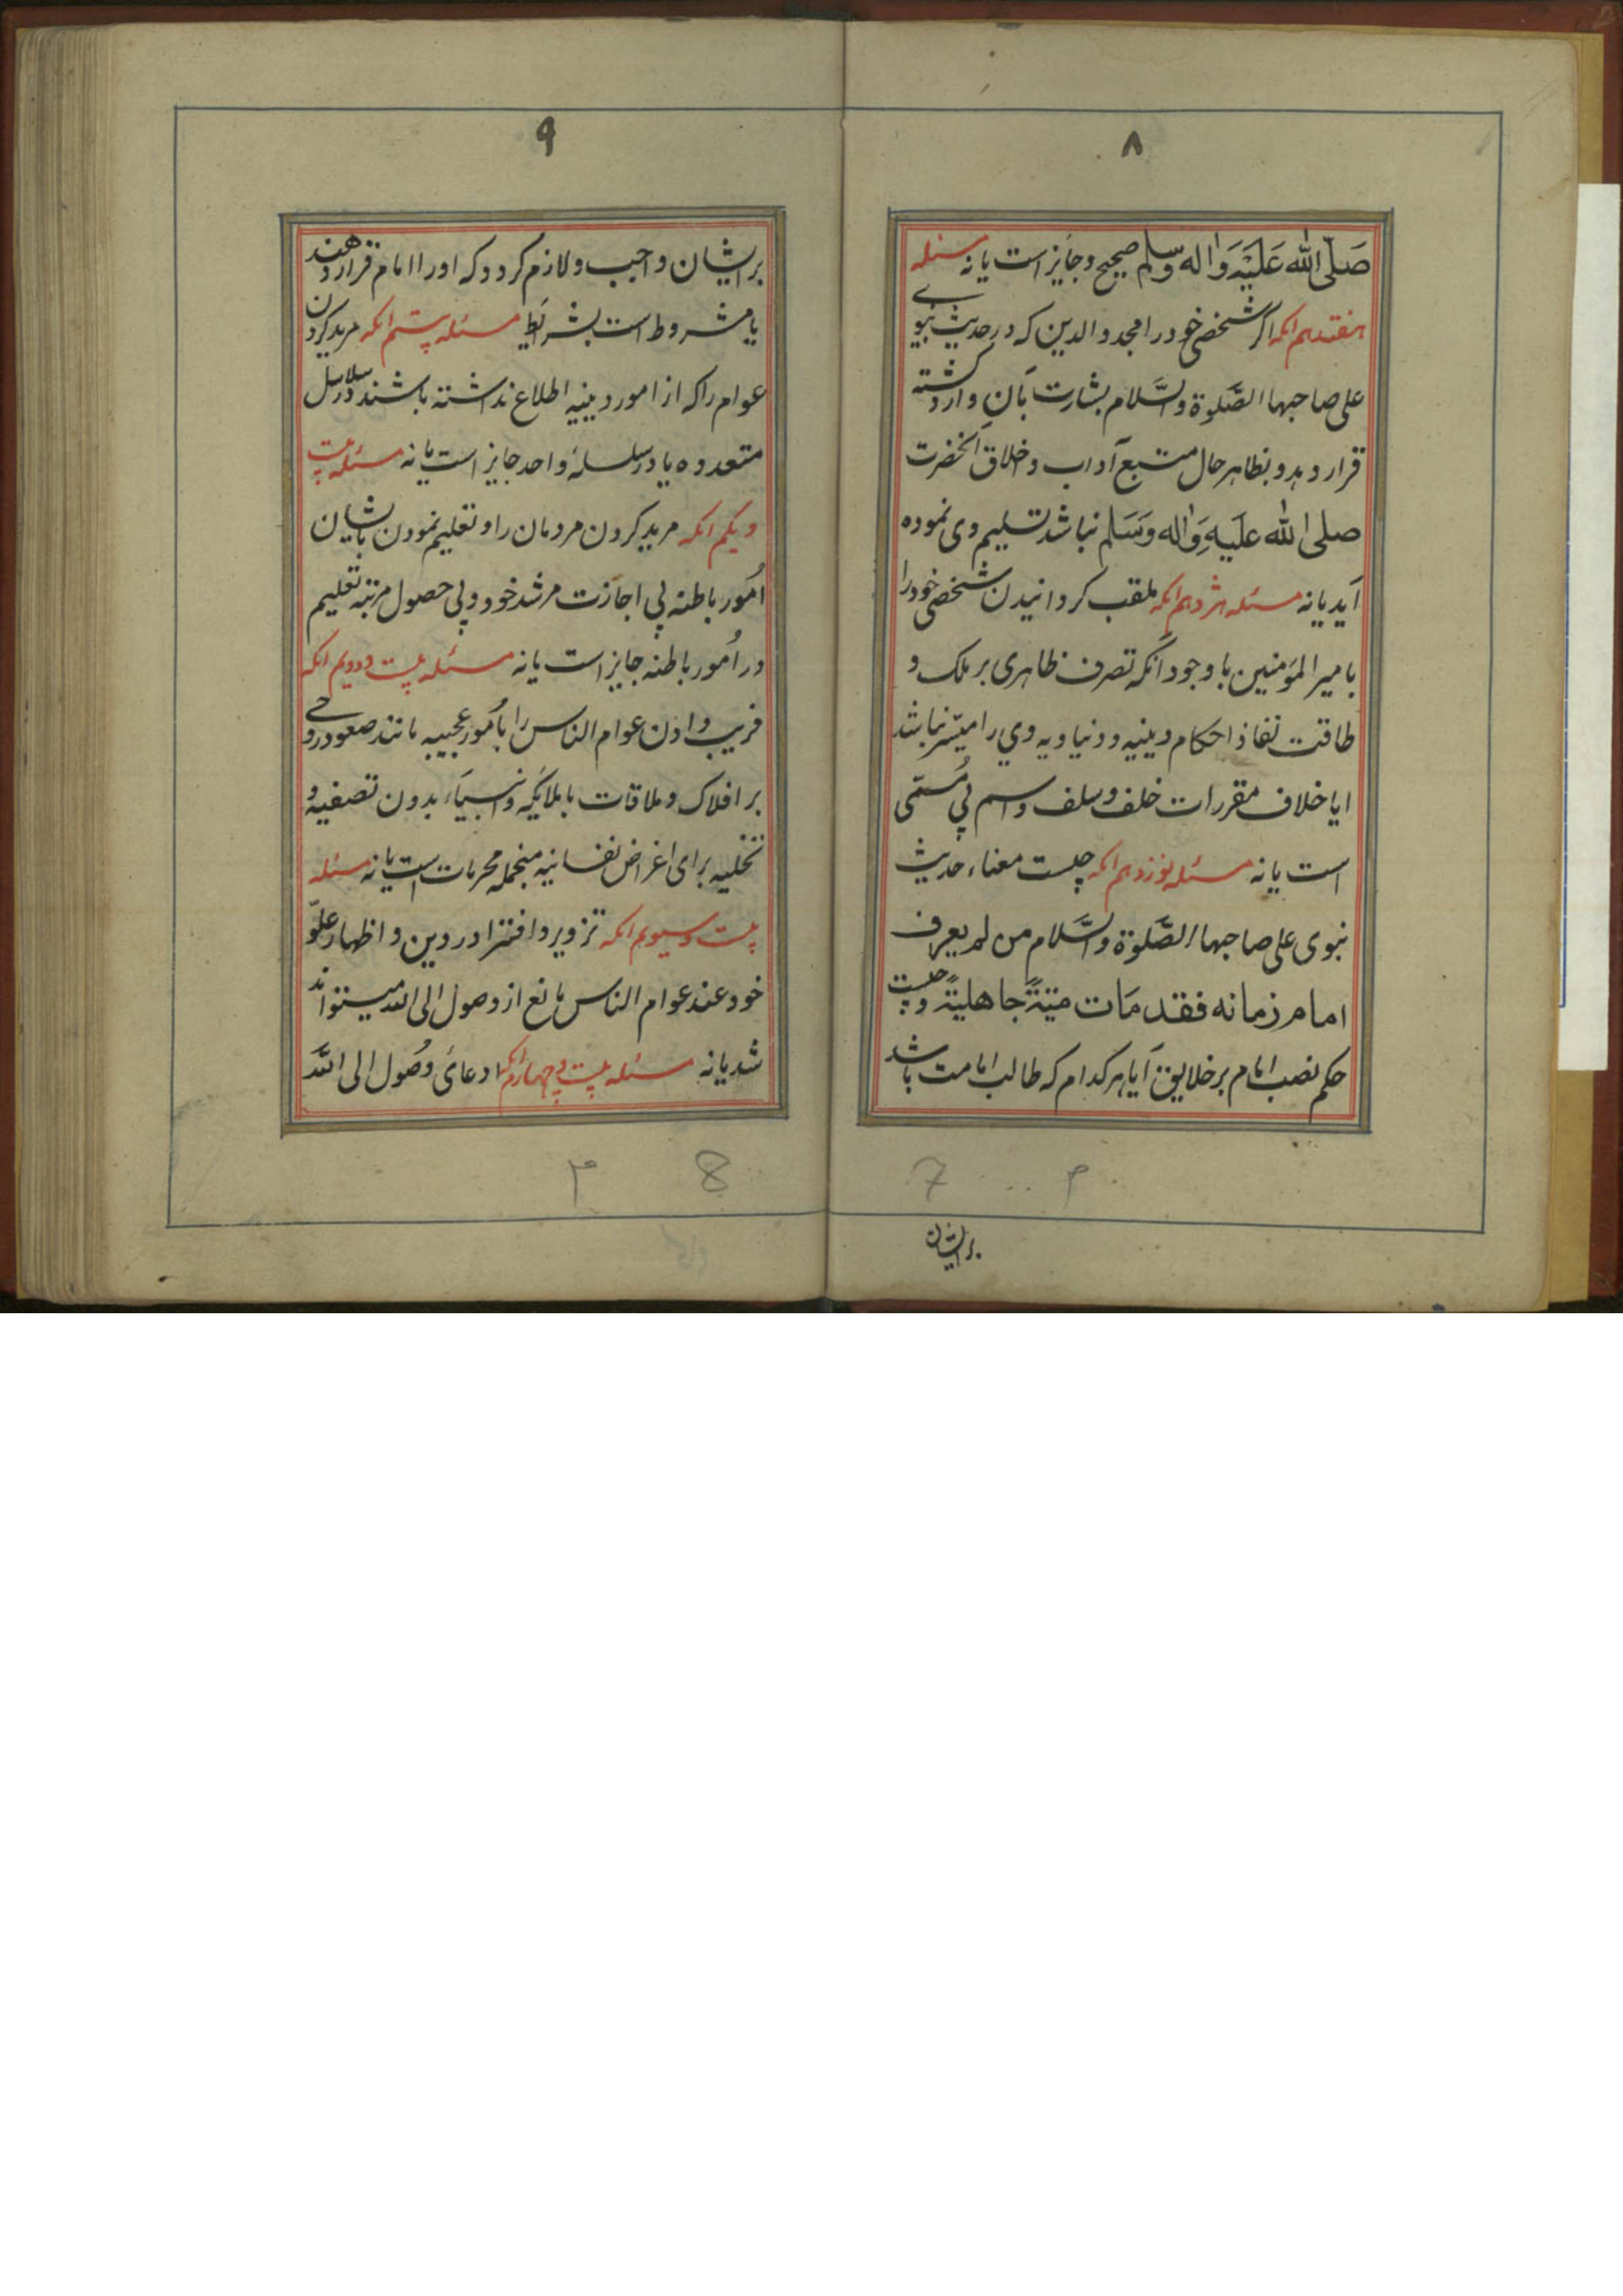 ۸
صَلّی الله عَلَیْهِ وَاله وسّلم صحیح و جایز است یا نه مسئله
هفتدهم انکه اگر شخصی خود را مجدد الدین که در حدیث نبوی
علی صاحبها الصَّلوة والسَّلام بشارت بآن وارد کشته
قرار دهد و بظاهر حال متبع آداب و اخلاق انحضرت
صلی الله علَیهِ وَاله وَسَلم نباشد تسلیم وی نموده
آید یا نه مسئله هژدهم انکه ملقب کردانیدن شخصی خود را
بامیر المؤمنین با وجود آنکه تصرف ظاهری بر ملک و
طاقت نفاذ احکام دینیه و دنیاویه وي را میّسر نباشد
ایا خلاف مقررات خلف و سلف و اسم بی مُسَمّی
است یا نه مسئله نوزدهم انکه چیست معناء حدیث
نبوی علی صاحبها الصَّلوة والسَّلام من لم یعرف
امام زمانه فقد مَات میتةً جاهلیةً و چیست
حکم نصب امام بر خلایق آیا هر کدام که طالب امامت باشد
7 م
برایشان
۹
برایشان واجب و لازم کردد که او را امام قرار دهند
یا مشروط است بشرایط مسئله بیستم انکه مرید کردن
عوام را که از امور دینیه اطلاع نداشته باشند در سلاسل
متعدده یا در سلسلهٔ واحد جایز است یا نه مسئله بیست
و یکم انکه مرید کردن مردمان را و تعلیم نمودن بایشان
اُمور باطنه بی اجازت مرشد خود و بی حصول مرتبه تعلیم
در اُمور باطنه جایز است یا نه مسئله بیست و دویم انکه
فریب دادن عوام الناس را بامُور عجیبه مانند صعود روحی
بر افلاک و ملاقات با ملایکه و انبیاء بدون تصفیه و
تخلیه برای اغراض نفسانیه منجمله محرمات است یا نه مسئله
بیست و سیویم انکه تزویر و افترا در دین و اظهار علوّ
خود عند عوام الناس مانع از وصول الی الله میتواند
شد یا نه مسئله بیست و چهارم انکه ادعایٔ وصُول الی الله
م 8